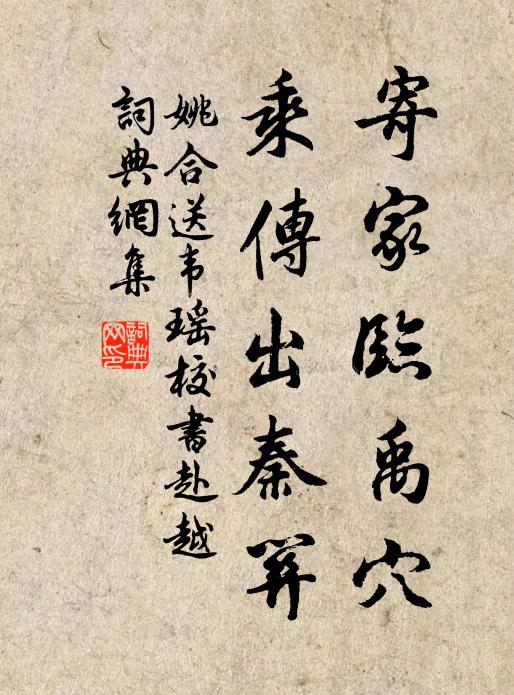 寄家臨禹穴
乘傳出秦關
姚合送韦瑶校書赴越
詞典網集
詞典網印